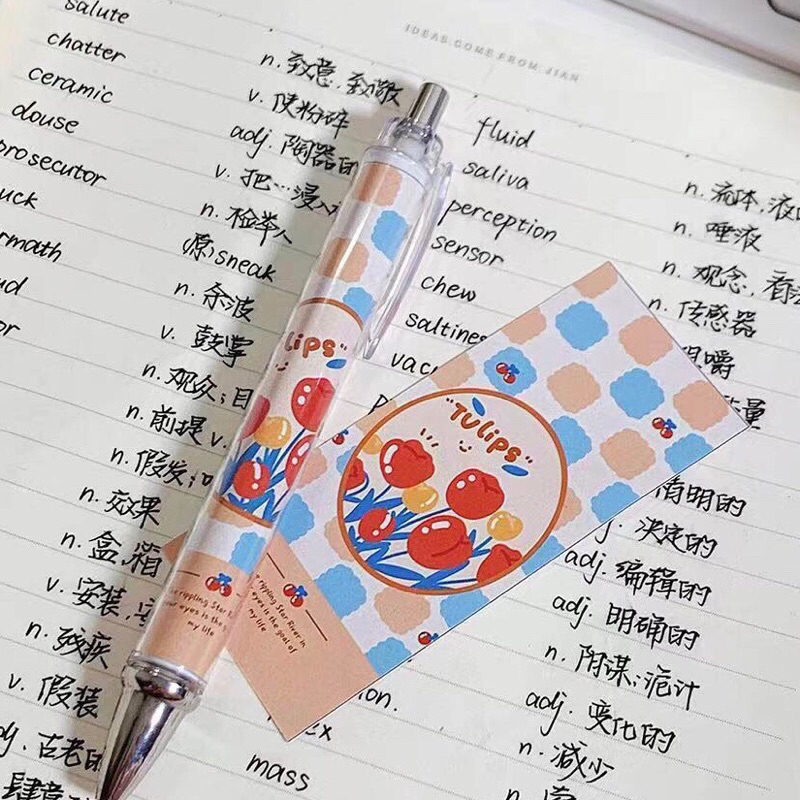 IDEAS COME FROM JIAN
salute
chatter
ceramic
douse
prosecutor
n. 致意, 致敬
v. 使粉碎
adj. 陶器的
v. 把…浸入
n. 检举人
原 sneak
n. 余波
v. 鼓掌
n. 观众;
n. 前提 v.
n. 假发;
n. 效果
n. 盒, 箱
v. 安装,
n. 残疾
v. 假装
古老的
fluid
saliva
perception
sensor
chew
saltines
mass
n. 流体,
n. 唾液
n. 观念,
n. 传感器
咀嚼
清明的
决定的
adj. 编辑的
adj. 明确的
n. 阴谋; 诡计
adj. 变化的
n. 减少
"Tulips"
rippling Star River in
eyes is the goal of
my life
lips"
rippling Star River in
your eyes is the
my life